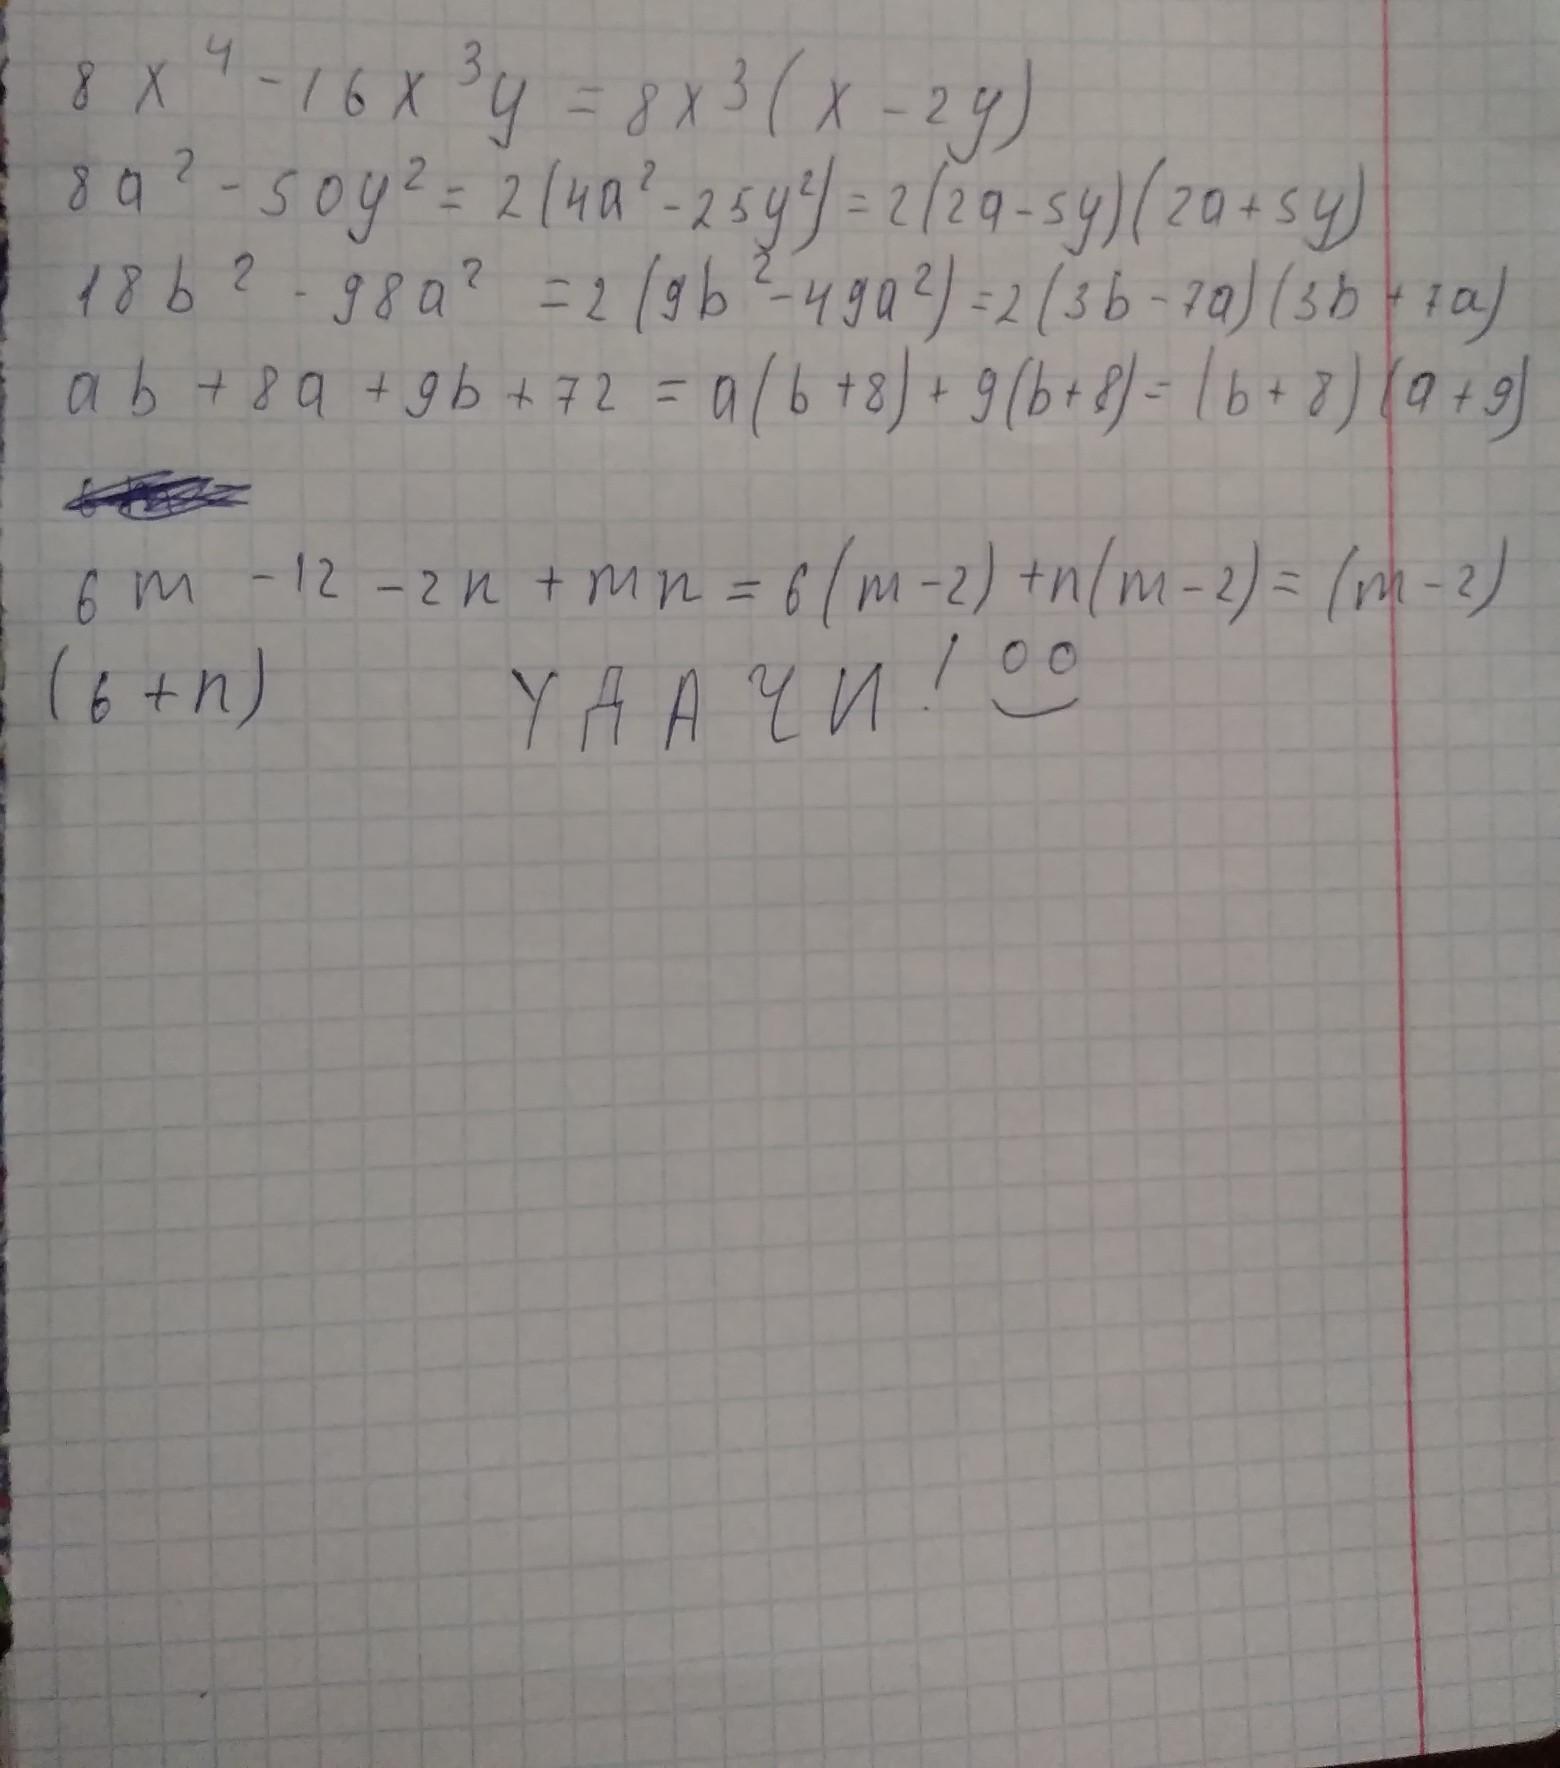 8x⁴ - 16x³y = 8x³(x - 2y)
8a² - 50y² = 2(4a² - 25y²) = 2(2a - 5y)(2a + 5y)
18b² - 98a² = 2(9b² - 49a²) = 2(3b - 7a)(3b + 7a)
ab + 8a + 9b + 72 = a(b + 8) + 9(b + 8) = (b + 8)(a + 9)
6m - 12 - 2n + mn = 6(m - 2) + n(m - 2) = (m - 2)
(6 + n) УДАЧИ!